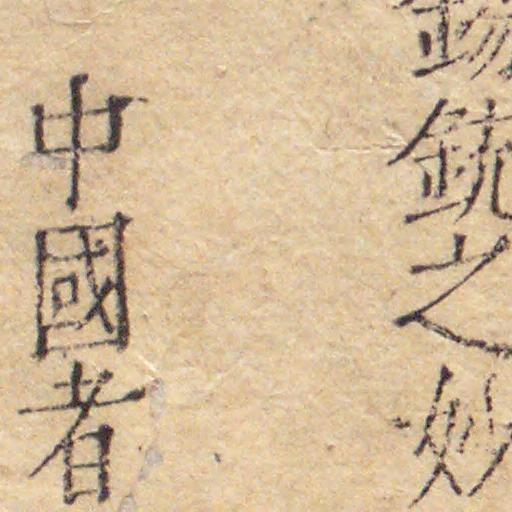 銃之妙
中國者